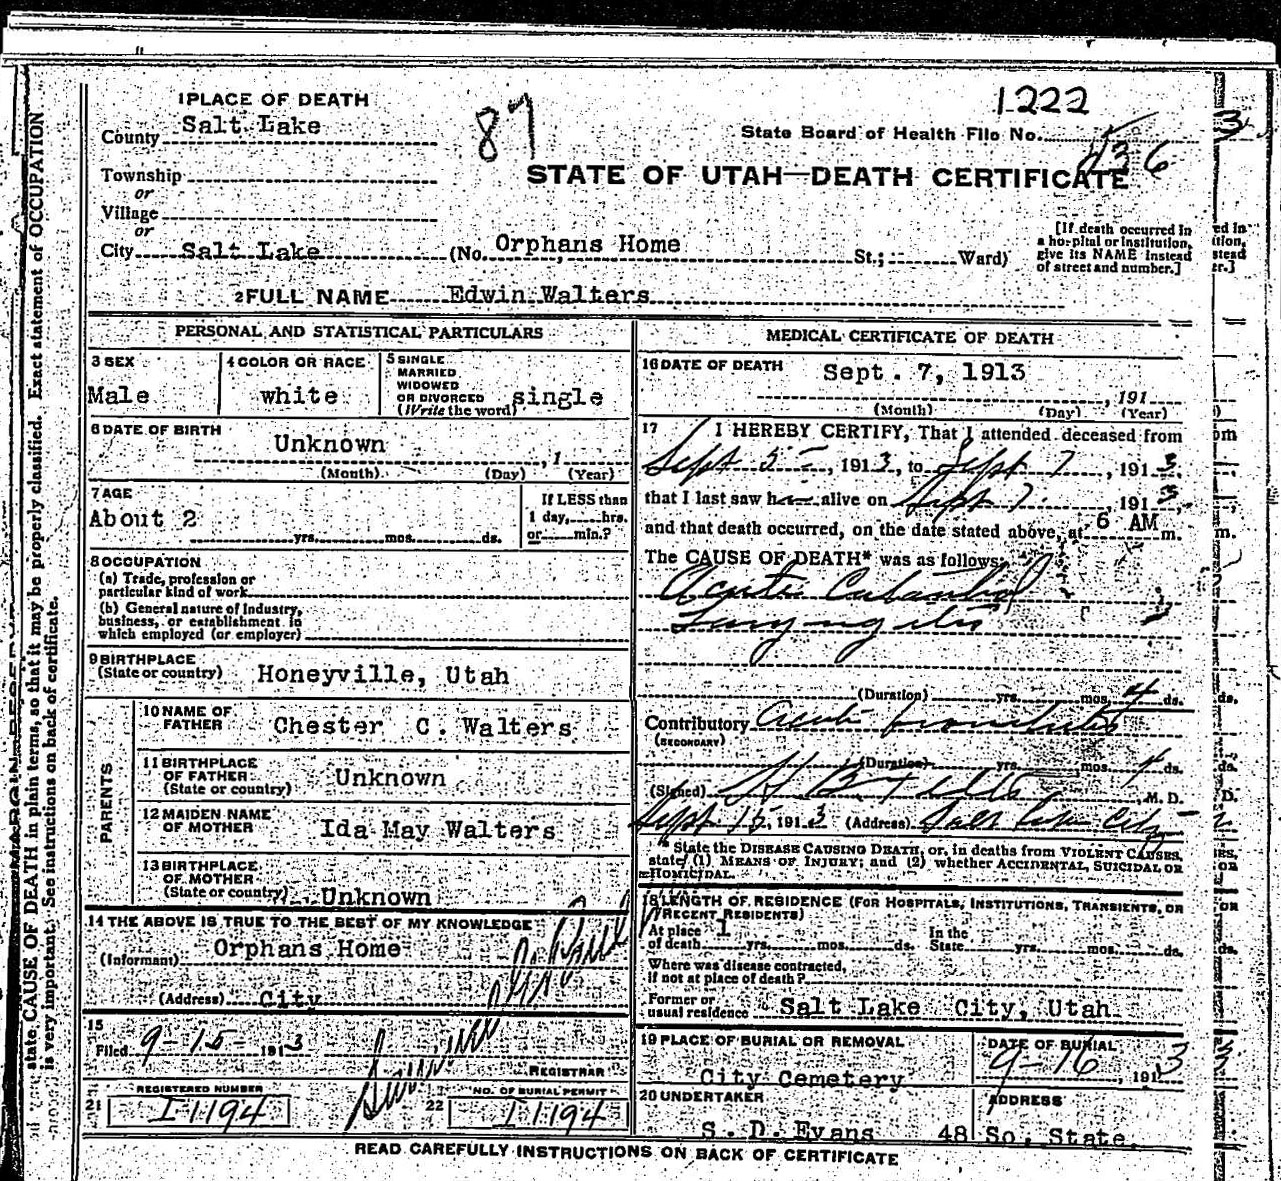 1222
1 PLACE OF DEATH
87
State Board of Health File No.
County Salt Lake
436
STATE OF UTAH—DEATH CERTIFICATE
Township
or
Village
or
City Salt Lake (No. Orphans Home St.; Ward)
[If death occurred in
a hospital or institution,
give its NAME instead
of street and number.]
2 FULL NAME Edwin Walters
PERSONAL AND STATISTICAL PARTICULARS
3 SEX
Male
4 COLOR OR RACE
white
5 SINGLE
MARRIED
WIDOWED
OR DIVORCED
(Write the word) single
6 DATE OF BIRTH
Unknown
, 1
(Month) (Day) (Year)
7 AGE
About 2
yrs. mos. ds.
If LESS than
1 day, hrs.
or min.?
8 OCCUPATION
(a) Trade, profession or
particular kind of work
(b) General nature of industry,
business, or establishment in
which employed (or employer)
9 BIRTHPLACE
(State or country) Honeyville, Utah
PARENTS
10 NAME OF
FATHER Chester C. Walters
11 BIRTHPLACE
OF FATHER
(State or country) Unknown
12 MAIDEN NAME
OF MOTHER Ida May Walters
13 BIRTHPLACE
OF MOTHER
(State or country) Unknown
14 THE ABOVE IS TRUE TO THE BEST OF MY KNOWLEDGE
(Informant) Orphans Home
(Address) City
15
Filed 9-15- 1913
REGISTRAR
REGISTERED NUMBER
21 I1194
NO. OF BURIAL PERMIT
22 I1194
MEDICAL CERTIFICATE OF DEATH
16 DATE OF DEATH Sept. 7, 1913
, 191
(Month) (Day) (Year)
17 I HEREBY CERTIFY, That I attended deceased from
Sept 5, 1913, to Sept 7, 1913,
that I last saw h alive on Sept 7, 1913,
and that death occurred, on the date stated above, at 6 AM m.
The CAUSE OF DEATH* was as follows:
Acute Catarrhal
Laryngitis
(Duration) yrs. mos. 4 ds.
Contributory acute bronchitis
(SECONDARY)
(Duration) yrs. mos. 4 ds.
(Signed) M. D.
Sept 15, 1913 (Address) Salt Lake City
* State the DISEASE CAUSING DEATH, or, in deaths from VIOLENT CAUSES,
state (1) MEANS OF INJURY; and (2) whether ACCIDENTAL, SUICIDAL OR
HOMICIDAL.
18 LENGTH OF RESIDENCE (FOR HOSPITALS, INSTITUTIONS, TRANSIENTS, OR
RECENT RESIDENTS)
At place 1 In the
of death yrs. mos. ds. State yrs. mos. ds.
Where was disease contracted,
if not at place of death?
Former or
usual residence Salt Lake City, Utah
19 PLACE OF BURIAL OR REMOVAL
City Cemetery
DATE OF BURIAL
9-16, 1913
20 UNDERTAKER
S. D. Evans
ADDRESS
48 So. State.
READ CAREFULLY INSTRUCTIONS ON BACK OF CERTIFICATE
state CAUSE OF DEATH in plain terms, so that it may be properly classified. Exact statement of OCCUPATION
is very important. See instructions on back of certificate.